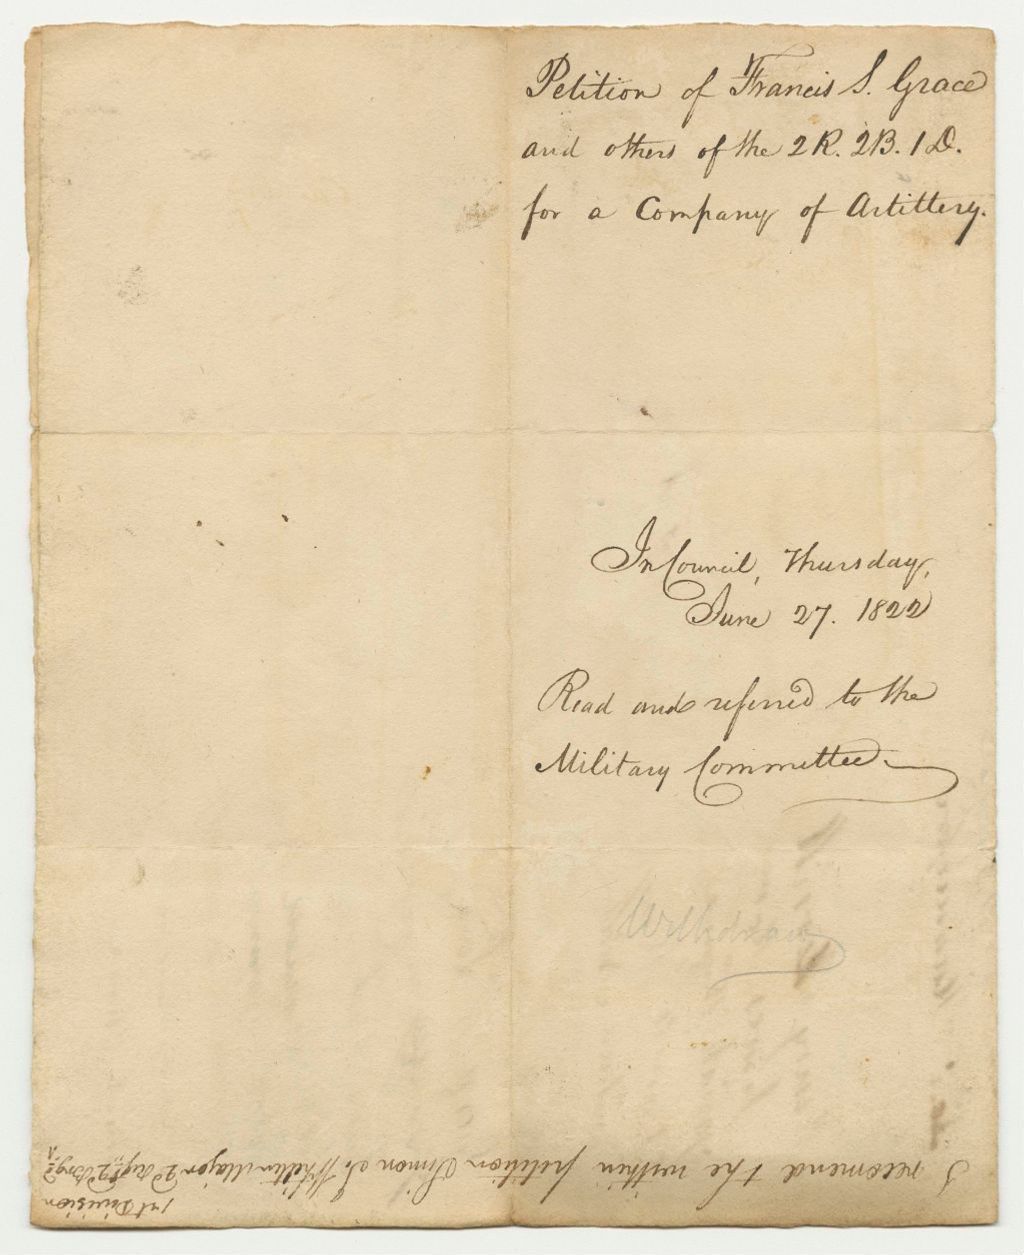 Petition of Francis S. Grace
and others of the 2 R. 2 B. 1 D.
for a Company of Artillery.
In Council, Thursday,
June 27. 1822
Read and referred to the
Military Committee.
Withdrawn
I recomend the within petition Simon
Major 2d
1st Division